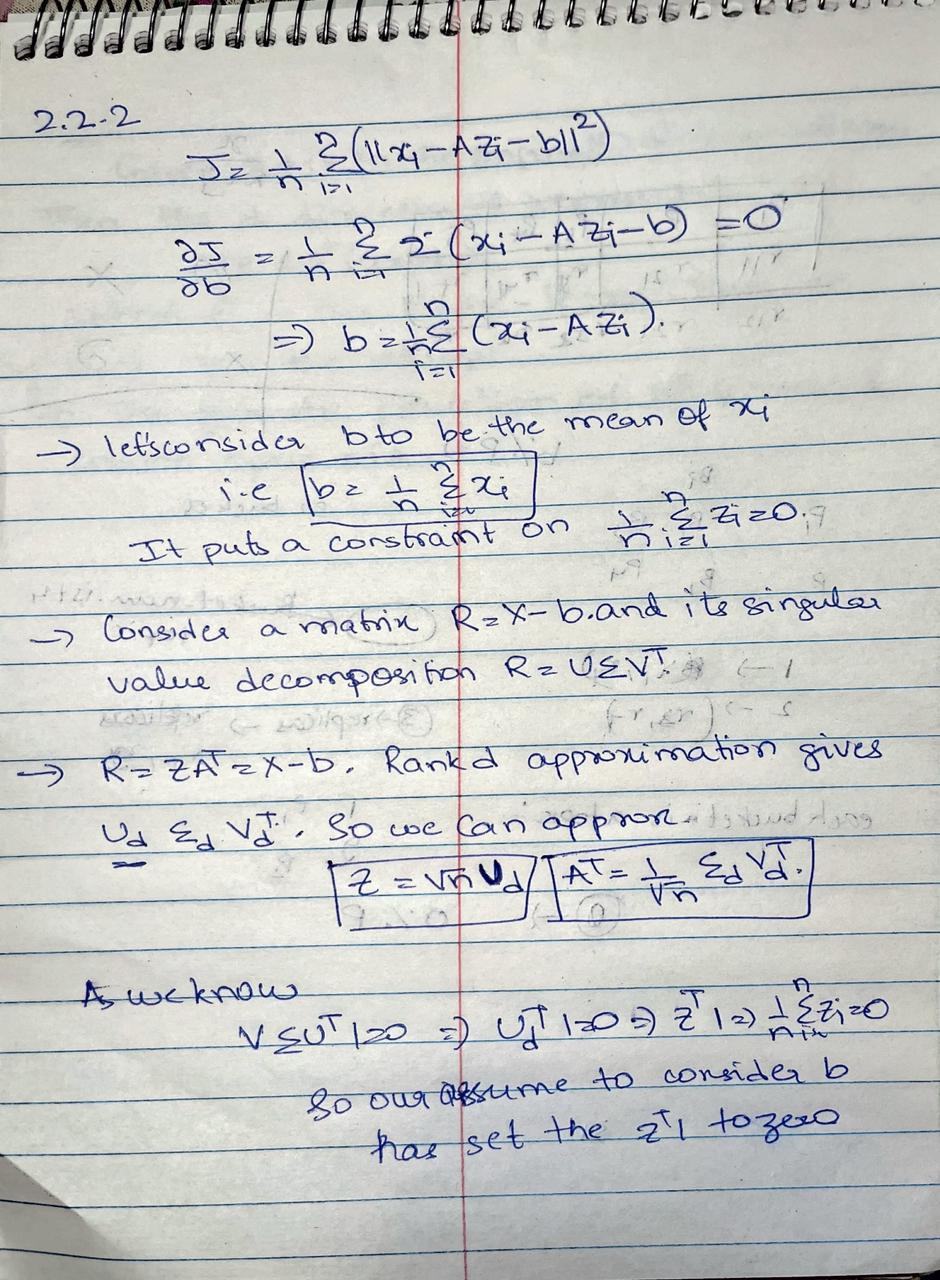 2.2.2
J = 1/n Σ_{i=1}^{n} (||xᵢ - Azᵢ - b||²)
∂J/∂b = 1/n Σ_{i=1}^{n} 2 (xᵢ - Azᵢ - b) = 0
=> b = 1/n Σ_{i=1}^{n} (xᵢ - Azᵢ).
→ let's consider b to be the mean of xᵢ
i.e b = 1/n Σ_{i=1}^{n} xᵢ
It puts a constraint on 1/n Σ_{i=1}^{n} zᵢ = 0.
→ Consider a matrix R = X - b. and its singular
value decomposition R = UΣVᵀ.
→ R = ZAᵀ = X - b. Rank d approximation gives
U_d Σ_d V_dᵀ. So we can approx.
Z = √n U_d Aᵀ = 1/√n Σ_d V_dᵀ.
As we know
VΣUᵀ1=0 => U_dᵀ1=0 => Zᵀ1 => 1/n Σ_{i=1}^{n} zᵢ = 0
So our assume to consider b
has set the zᵀ1 to zero